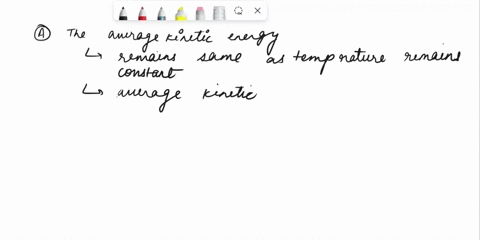 A The average kinetic energy
↳ remains same as tempnature remains
constant
↳ average kinetic